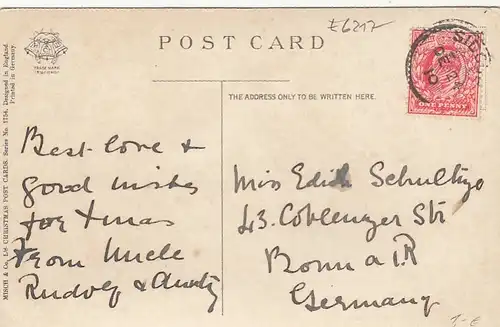 £6217
POST CARD
TRADE MARK
THE ADDRESS ONLY TO BE WRITTEN HERE.
MISCH & Co., Ld CHRISTMAS POST CARDS. Series No. 1754. Designed in England.
Printed in Germany.
SIDC
DE
10
ONE PENNY
Best love &
good wishes
for Xmas
From Uncle
Rudolf & Aunty
Miss Edith Schultze
43. Coblenzer Str
Bonn a. R
Germany